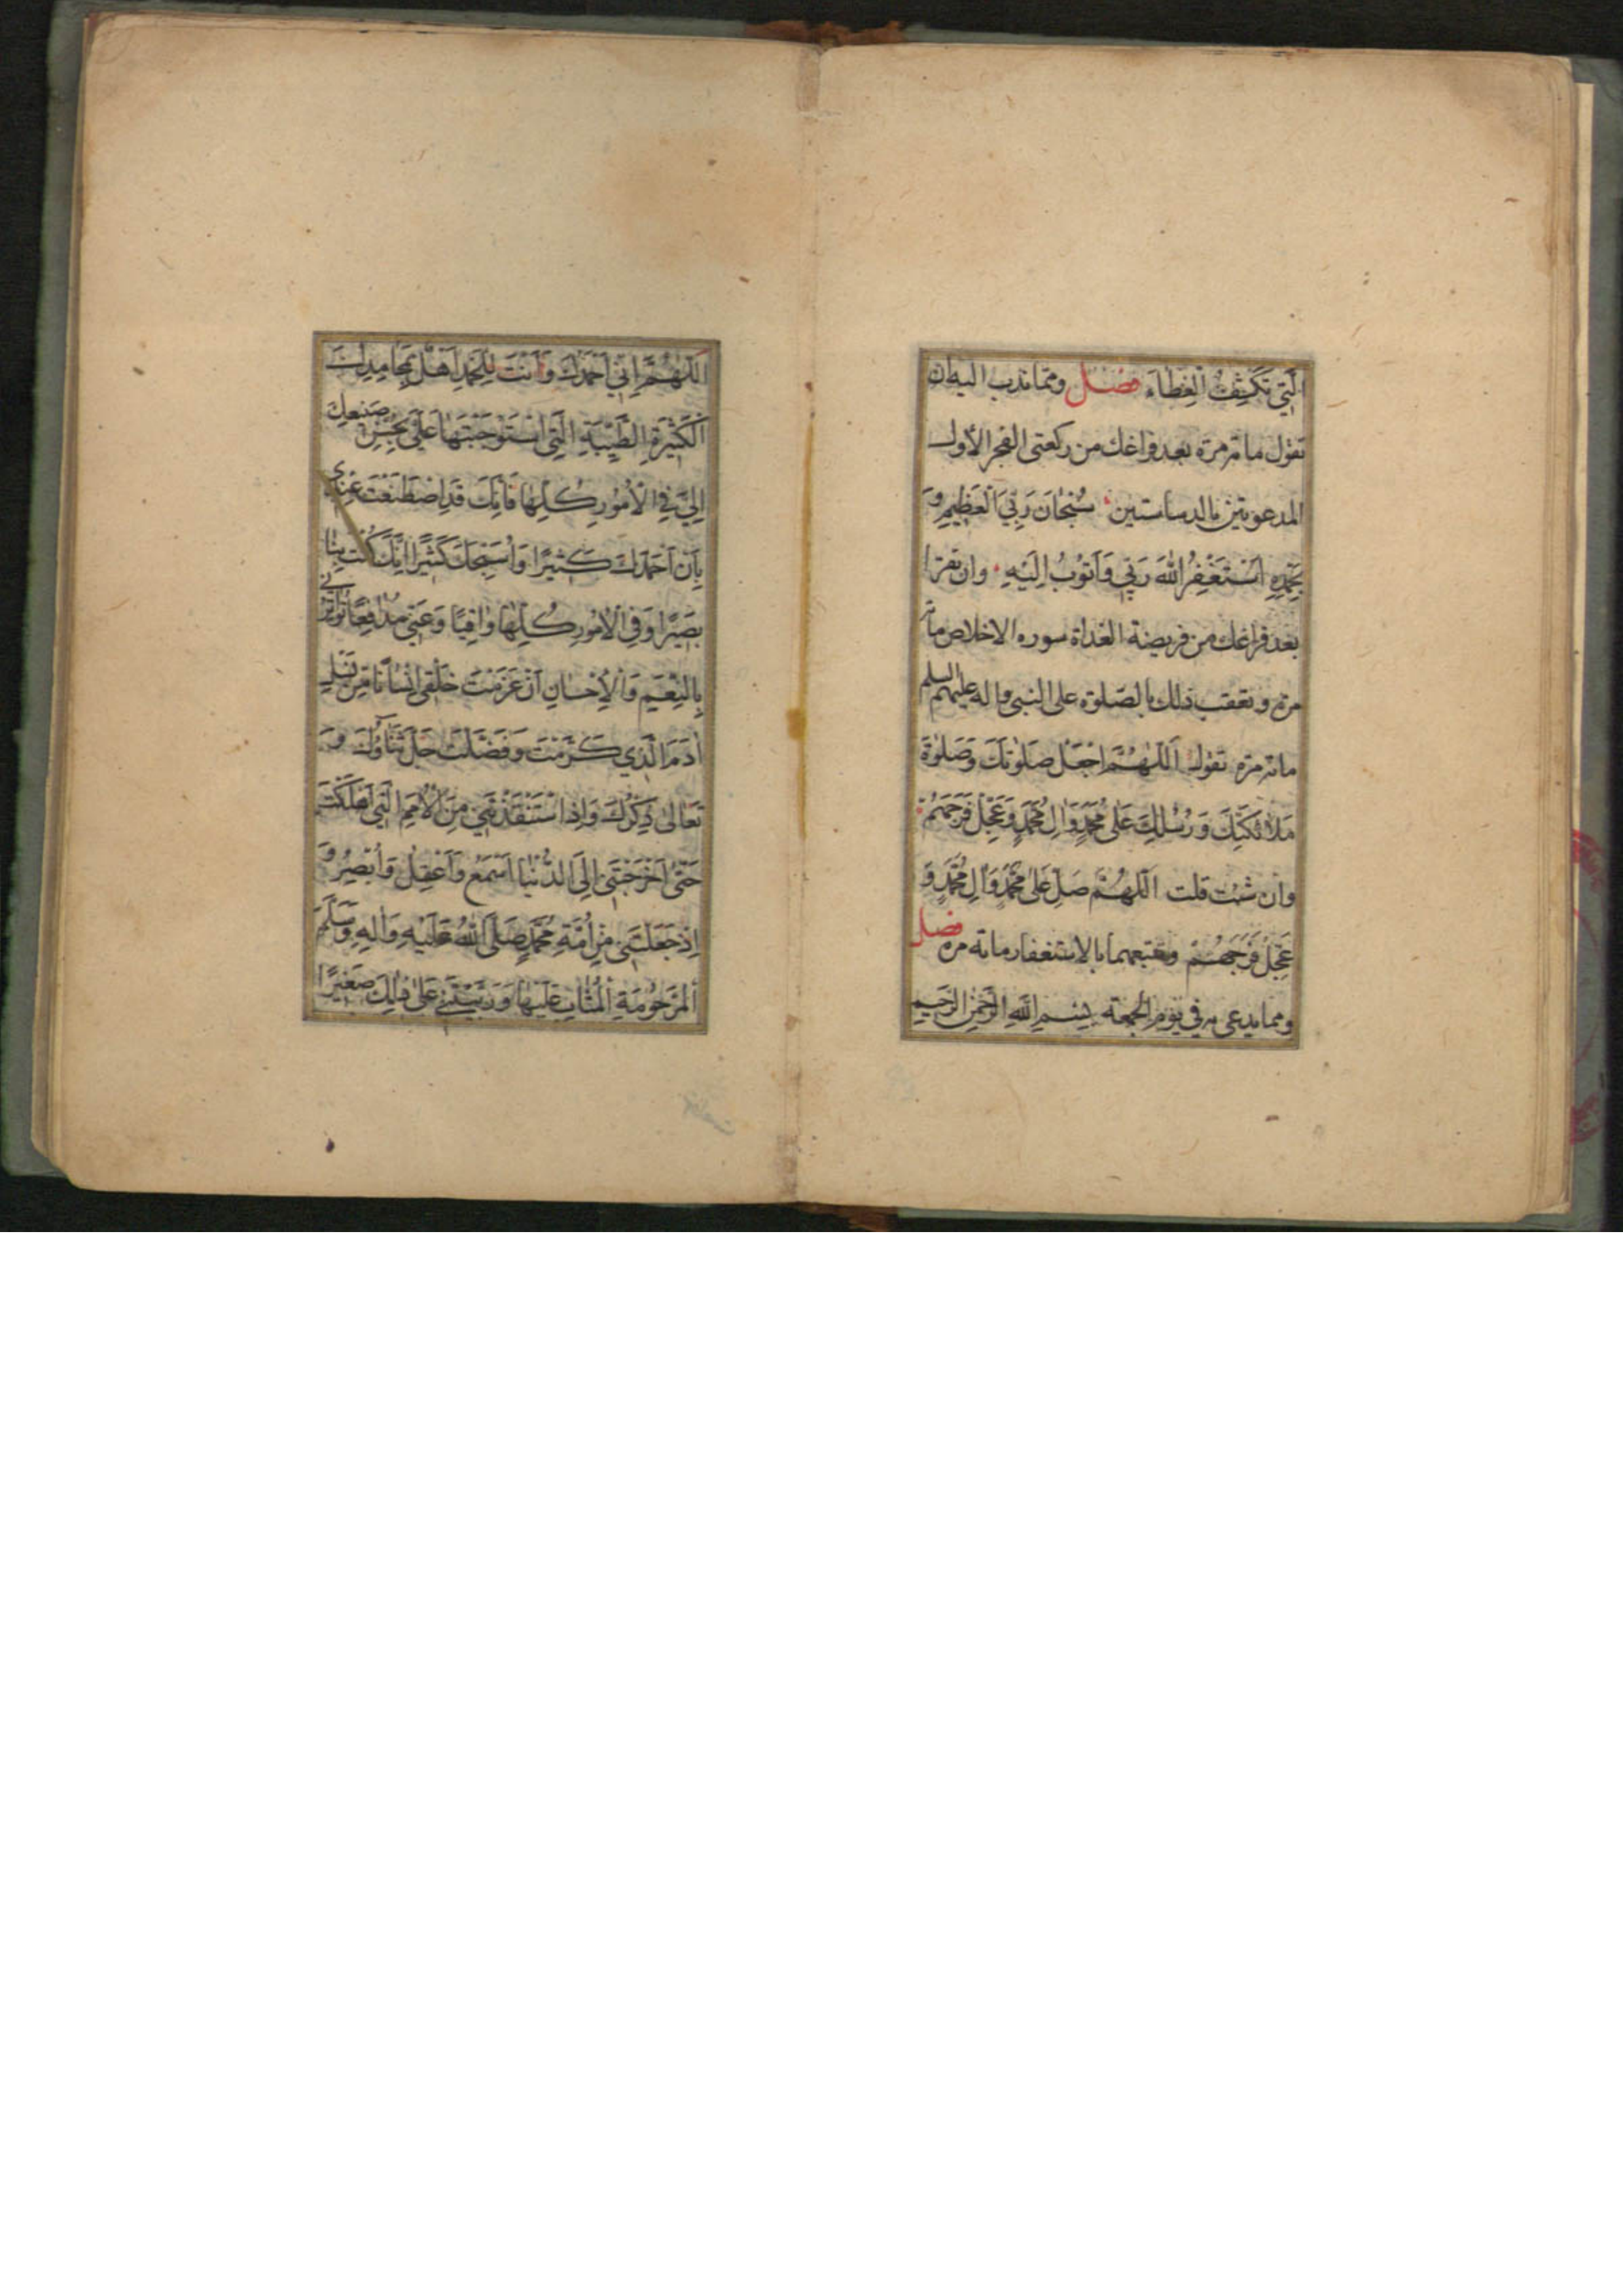 الَّتِي تَكْشِفُ الْغِطَاءَ فصل ومما ندب اليه ان
تقول مائة مرة بعد فراغك من ركعتى الفجر الأول
سُبْحَانَ رَبِّيَ الْعَظِيمِ وَ
بِحَمْدِهِ اَسْتَغْفِرُ اللّٰهَ رَبِّي وَأَتُوبُ اِلَيْهِ وان تقرا
بعد فراغك من فريضة الغداة سوره الاخلاص مائة
مرة وتعقب ذلك بالصلوة على النبى واله عليهم السلم
مائة مرة تقول اَللّٰهُمَّ اجْعَلْ صَلَوٰتَكَ وَصَلَوٰةَ
مَلَائِكَتِكَ وَرُسُلِكَ عَلىٰ مُحَمَّدٍ وَاٰلِ مُحَمَّدٍ وَعَجِّلْ فَرَجَهُمْ
وان شئت قلت اَللّٰهُمَّ صَلِّ عَلىٰ مُحَمَّدٍ وَاٰلِ مُحَمَّدٍ وَ
عَجِّلْ فَرَجَهُمْ وتتبعهما بالاستغفار مائه مره فصل
ومما يدعى به في يوم الجمعة بِسْمِ اللّٰهِ الرَّحْمٰنِ الرَّحِيمِ
اَللّٰهُمَّ اِنِّي اَحْمَدُكَ وَاَنْتَ لِلْحَمْدِ اَهْلٌ بِمَحَامِدِكَ
الْكَثِيرَةِ الطَّيِّبَةِ الَّتِي اسْتَوْجَبْتَهَا عَلَيَّ بِحُسْنِ صَنِيعِكَ
اِلَيَّ فِي الْاُمُورِ كُلِّهَا فَاِنَّكَ قَدِ اصْطَنَعْتَ عِنْدِي
بِاَنْ اَحْمَدَكَ كَثِيرًا وَاُسَبِّحَكَ كَثِيرًا اِنَّكَ كُنْتَ بِنَا
بَصِيرًا وَفِي الْاُمُورِ كُلِّهَا وَاقِيًا وَعَنِّي مُدَافِعًا تُوَاتِرُنِي
بِالنِّعَمِ وَالْاِحْسَانِ اَنْ عَزَمْتَ خَلْقِي اِنْسَانًا مِنْ نَسْلِ
اٰدَمَ الَّذِي كَرَّمْتَ وَفَضَّلْتَ جَلَّ ثَنَاؤُكَ وَ
تَعَالىٰ ذِكْرُكَ وَاِذِ اسْتَنْقَذْتَنِي مِنَ الْاُمَمِ الَّتِي اَهْلَكْتَ
حَتّىٰ اَخْرَجْتَنِي اِلَى الدُّنْيَا اَسْمَعُ وَاَعْقِلُ وَاُبْصِرُ وَ
اِذْ جَعَلْتَنِي مِنْ اُمَّةِ مُحَمَّدٍ صَلَّى اللّٰهُ عَلَيْهِ وَاٰلِهِ وَسَلَّمَ
الْمَرْحُومَةِ الْمُثَابِ عَلَيْهَا وَرَبَّيْتَنِي عَلىٰ ذٰلِكَ صَغِيرًا